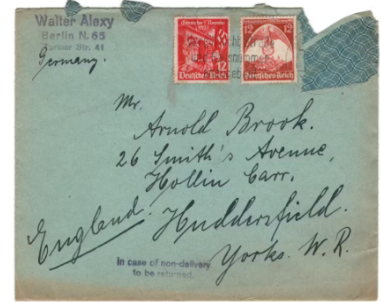 Walter Alexy
Berlin N. 65
Str. 41
Germany.
12
Deutsches Reich
12
Deutsches Reich
Mr.
Arnold Brook.
26 Smith's Avenue,
Hollin Carr.
Huddersfield.
England.
Yorks. W. R.
In case of non-delivery
to be returned.